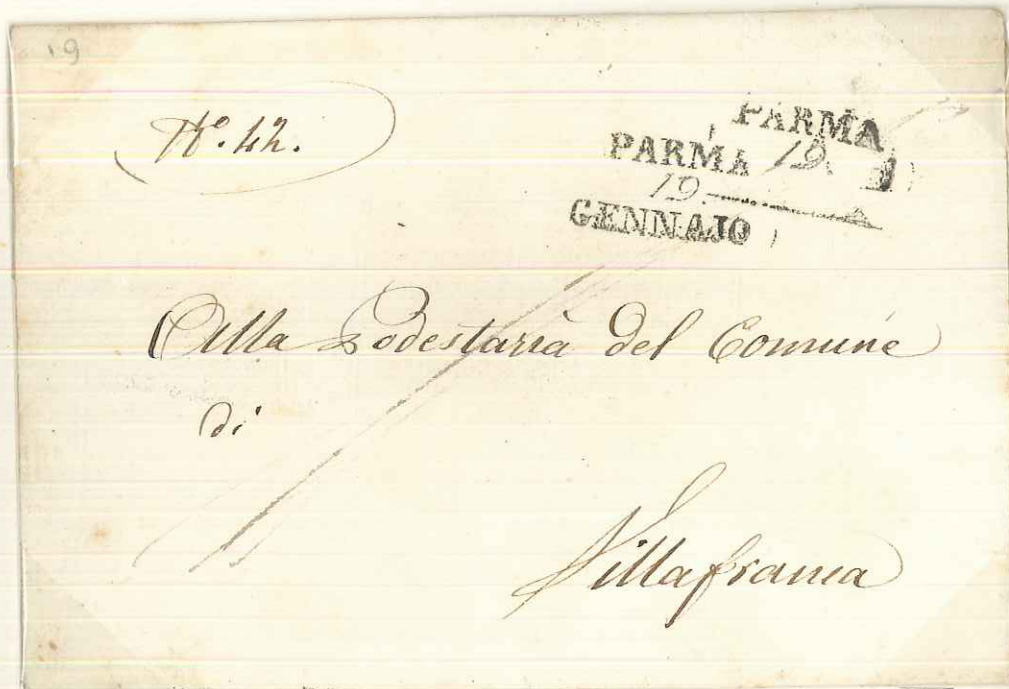 19
Nº. 42.
PARMA
19.
PARMA
19.
GENNAJO
Alla Podestaria del Comune
di
Villafranca